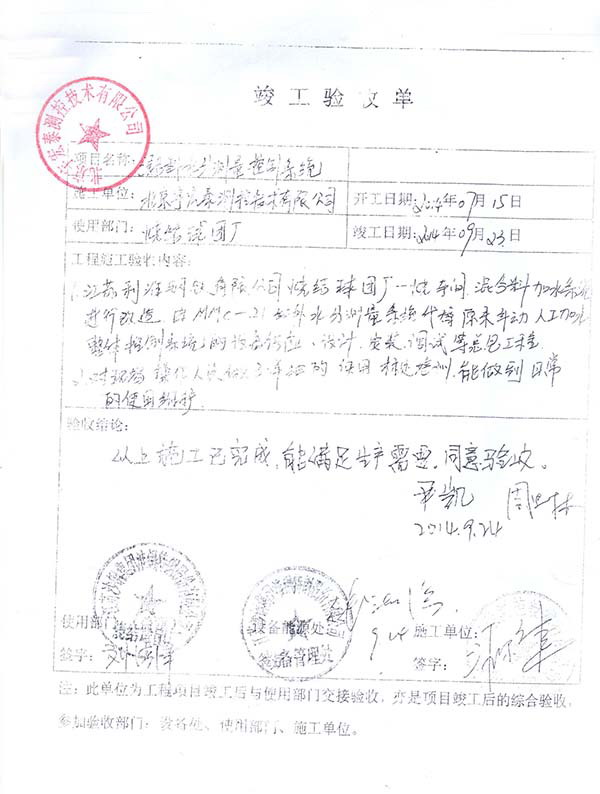 竣工验收单
北京宇宏泰测控技术有限公司
项目名称: 水分测量控制系统
施工单位: 北京宇宏泰测控技术有限公司 开工日期: 2014年07月15日
使用部门: 烧结球团厂 竣工日期: 2014年09月23日
工程施工验收内容:
1. 江苏利淮钢铁有限公司烧结球团厂一烧车间混合料加水系统
进行改造 由MMC-21红外水分测量系统代替原来手动人工加水
整体控制系统的设备供应、设计、安装、调试等总包工程
2. 对现场操作人员 的使用 培训,能做到日常
的使用维护
验收结论:
以上施工已完成,能满足生产需要,同意验收。
尹凯 周
2014.9.24
使用部门 设备能源处 施工单位:
设备管理处 9.24
签字: 签字:
注: 此单位为工程项目竣工后与使用部门交接验收,亦是项目竣工后的综合验收,
参加验收部门: 设备处、使用部门、施工单位。